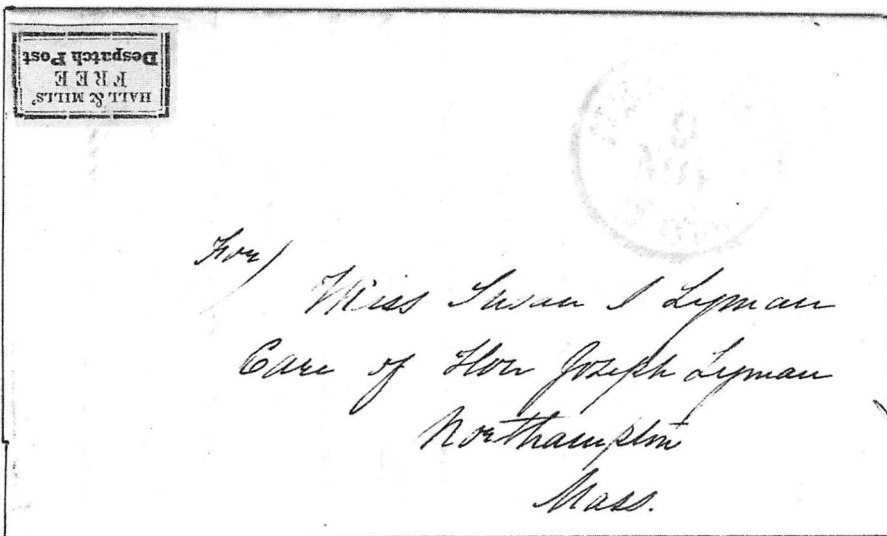 HALL & MILLS'
FREE
Despatch Post
For/
Miss Susan I Lyman
Care of Hon Joseph Lyman
Northampton
Mass.